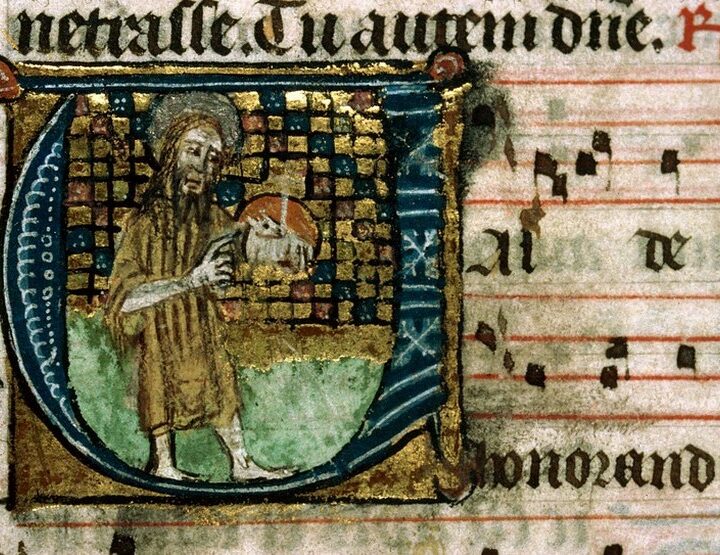 netrasse. Tu autem dñe. R
VAl de
honorand